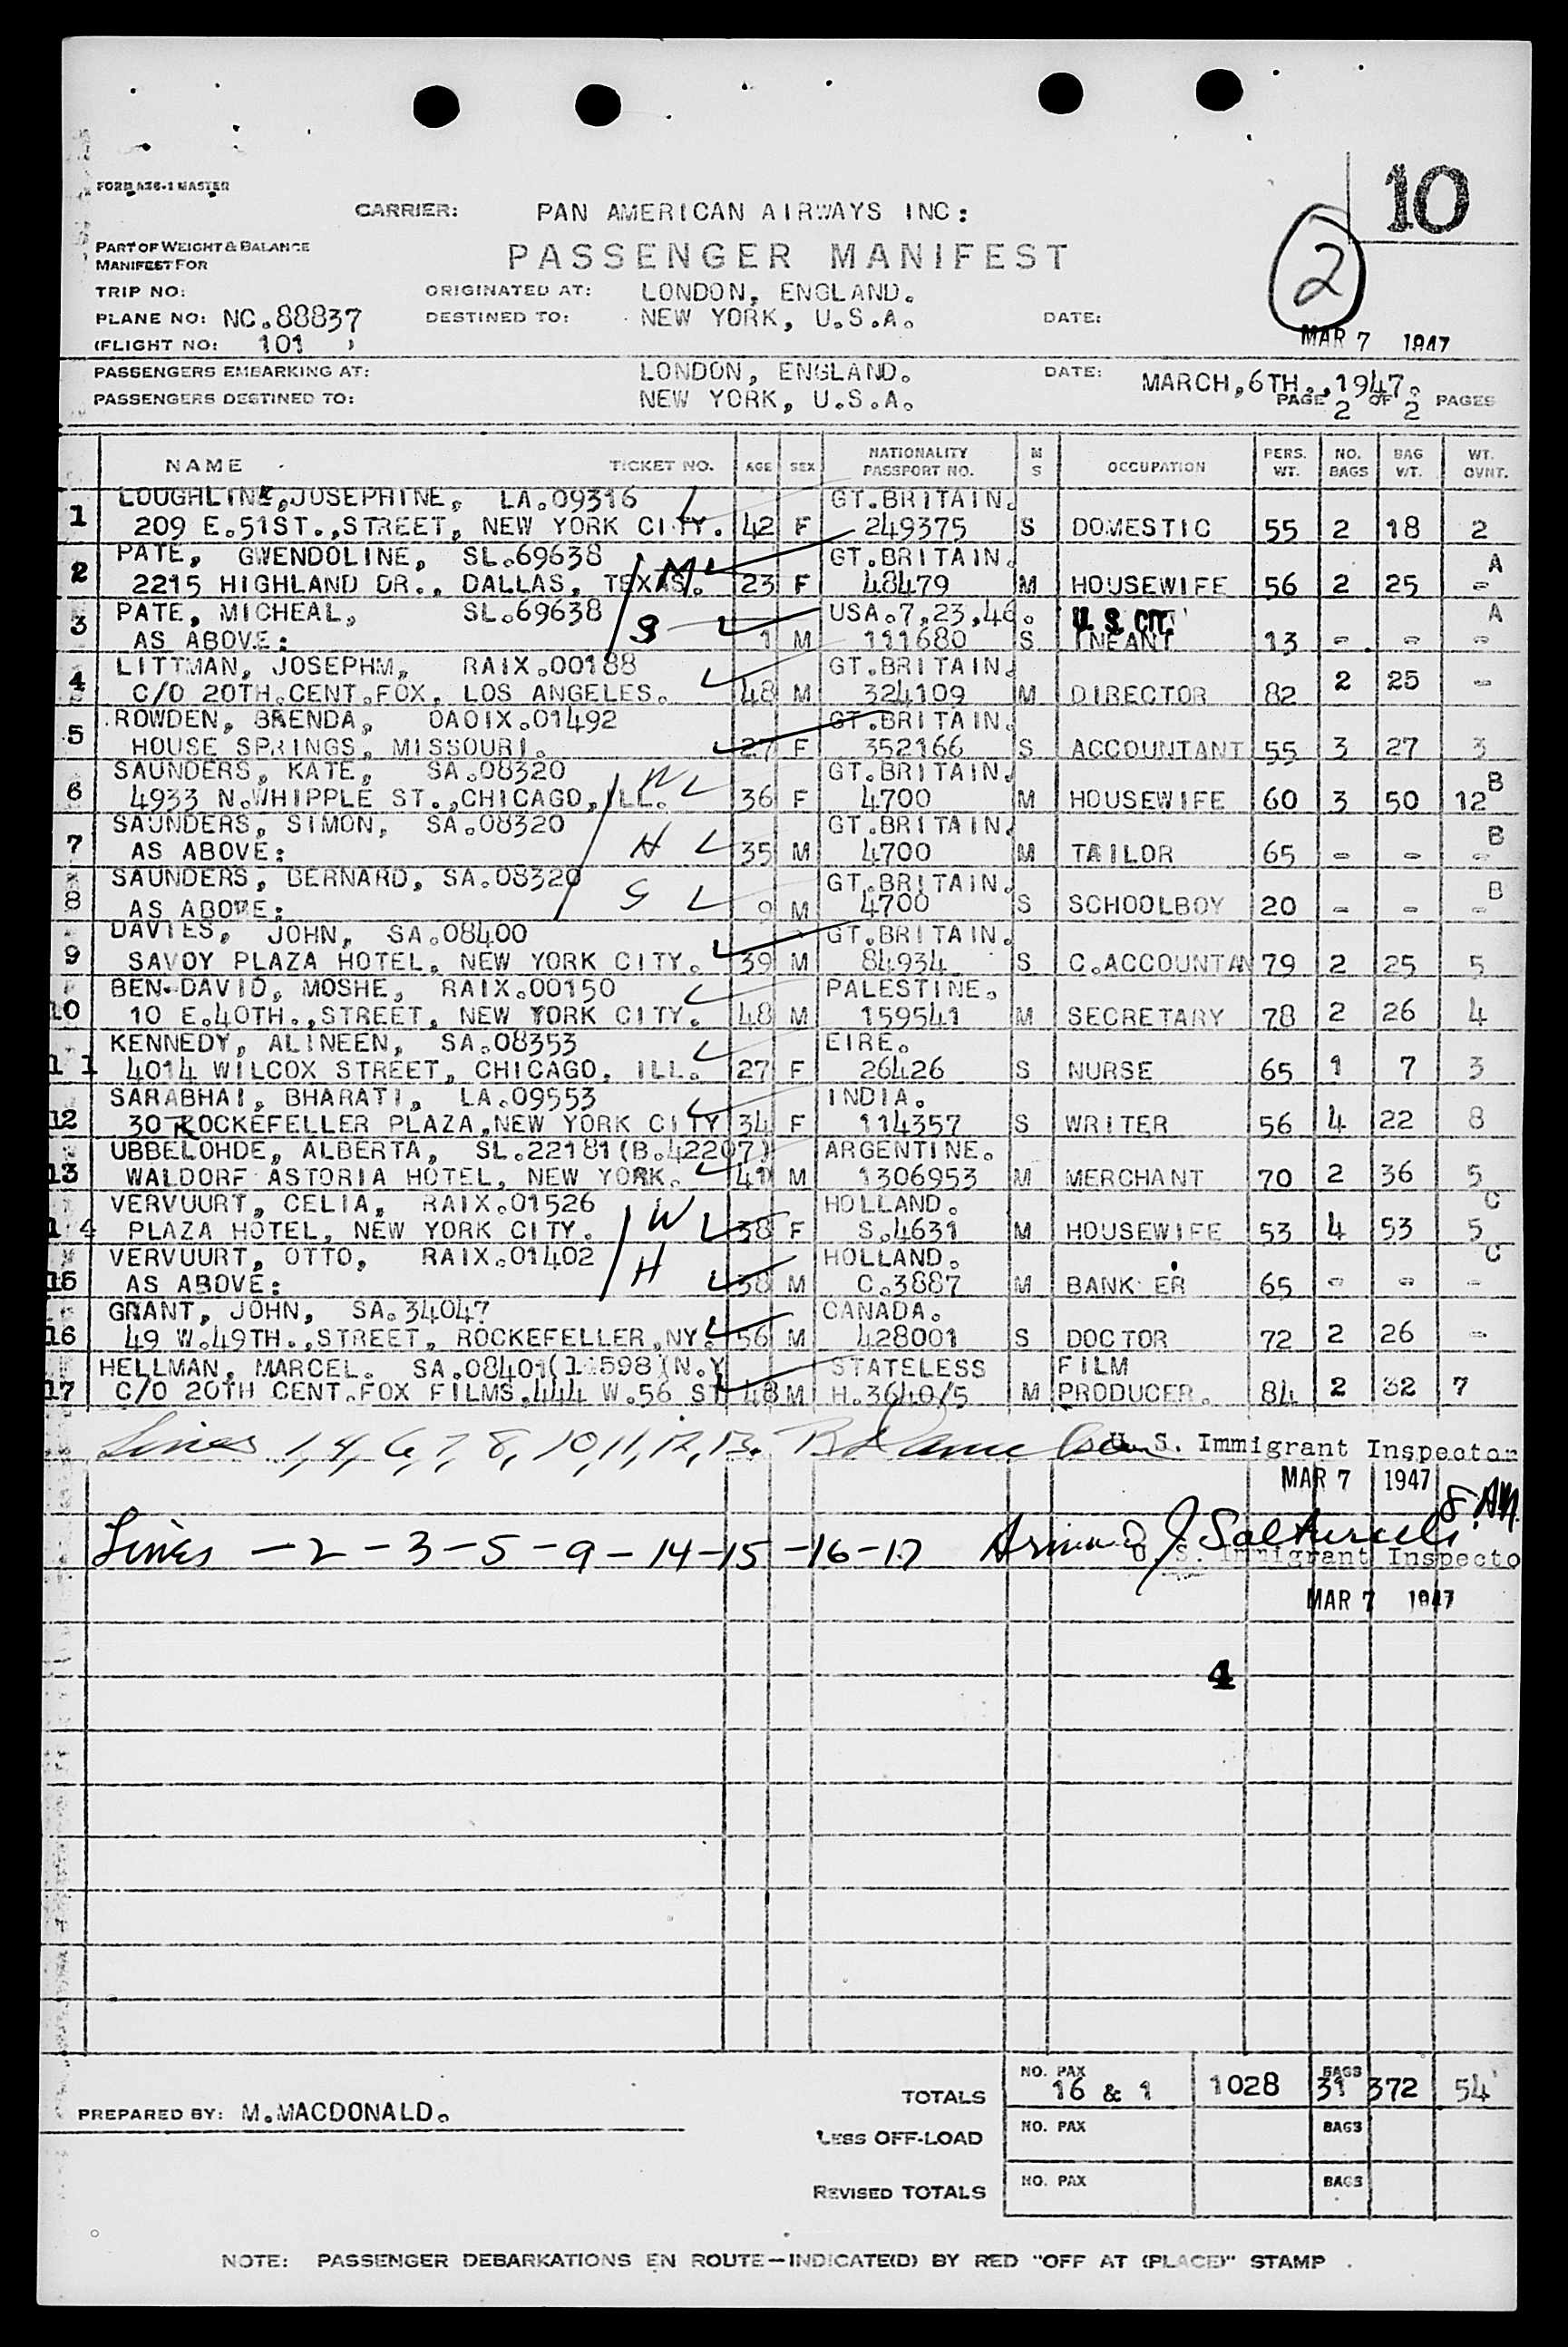 FORM A36-1 MASTER
10
CARRIER: PAN AMERICAN AIRWAYS INC:
PART OF WEIGHT & BALANCE
MANIFEST FOR
PASSENGER MANIFEST
2
TRIP NO: ORIGINATED AT: LONDON, ENGLAND.
PLANE NO: NC.88837 DESTINED TO: NEW YORK, U.S.A. DATE:
(FLIGHT NO: 101 ) MAR 7 1947
PASSENGERS EMBARKING AT: LONDON, ENGLAND. DATE: MARCH,6TH.,1947.
PASSENGERS DESTINED TO: NEW YORK, U.S.A. PAGE 2 OF 2 PAGES
NAME TICKET NO. AGE SEX NATIONALITY PASSPORT NO. M S OCCUPATION PERS. WT. NO. BAGS BAG WT. WT. OVNT.
LOUGHLINE,JOSEPHINE, LA.09316 GT.BRITAIN.
1 209 E.51ST.,STREET, NEW YORK CITY. 42 F 249375 S DOMESTIC 55 2 18 2
PATE, GWENDOLINE, SL.69638 M GT.BRITAIN. A
2 2215 HIGHLAND DR., DALLAS, TEXAS. 23 F 48479 M HOUSEWIFE 56 2 25 -
PATE, MICHEAL, SL.69638 S USA.7,23,46. U. S. CIT. A
3 AS ABOVE: 1 M 111680 S INFANT 13 - - -
LITTMAN, JOSEPHM, RAIX.00188 GT.BRITAIN.
4 C/O 20TH.CENT.FOX, LOS ANGELES. 48 M 324109 M DIRECTOR 82 2 25 -
ROWDEN, BRENDA, OAOIX.01492 GT.BRITAIN.
5 HOUSE SPRINGS, MISSOURI. 27 F 352166 S ACCOUNTANT 55 3 27 3
SAUNDERS, KATE, SA.08320 W GT.BRITAIN. B
6 4933 N.WHIPPLE ST.,CHICAGO,ILL. 36 F 4700 M HOUSEWIFE 60 3 50 12
SAUNDERS, SIMON, SA.08320 H GT.BRITAIN. B
7 AS ABOVE: 35 M 4700 M TAILOR 65 - - -
SAUNDERS, BERNARD, SA.08320 S GT.BRITAIN. B
8 AS ABOVE: 9 M 4700 S SCHOOLBOY 20 - - -
DAVIES, JOHN, SA.08400 GT.BRITAIN.
9 SAVOY PLAZA HOTEL, NEW YORK CITY. 39 M 84934 S C.ACCOUNTAN 79 2 25 5
BEN-DAVID, MOSHE, RAIX.00150 PALESTINE.
10 10 E.40TH.,STREET, NEW YORK CITY. 48 M 159541 M SECRETARY 78 2 26 4
KENNEDY, ALINEEN, SA.08353 EIRE.
11 4014 WILCOX STREET, CHICAGO, ILL. 27 F 26426 S NURSE 65 1 7 3
SARABHAI, BHARATI, LA.09553 INDIA.
12 30 ROCKEFELLER PLAZA,NEW YORK CITY 34 F 114357 S WRITER 56 4 22 8
UBBELOHDE, ALBERTA, SL.22181(B.42207) ARGENTINE.
13 WALDORF ASTORIA HOTEL, NEW YORK. 41 M 1306953 M MERCHANT 70 2 36 5
VERVUURT, CELIA, RAIX.01526 W HOLLAND. C
14 PLAZA HOTEL, NEW YORK CITY. 38 F S.4631 M HOUSEWIFE 53 4 53 5
VERVUURT, OTTO, RAIX.01402 H HOLLAND. C
15 AS ABOVE: 38 M C.3887 M BANK ER 65 - - -
GRANT, JOHN, SA.34047 CANADA.
16 49 W.49TH.,STREET, ROCKEFELLER,NY. 56 M 428001 S DOCTOR 72 2 26 -
HELLMAN, MARCEL. SA.08401(11598)(N.Y STATELESS FILM
17 C/O 20TH CENT.FOX FILMS,444 W.56 ST 48 M H.3640/5 M PRODUCER. 84 2 32 7
Lines 1, 4, 6, 7, 8, 10, 11, 12, 13. U. S. Immigrant Inspector
MAR 7 1947
8 AM
Lines - 2 - 3 - 5 - 9 - 14 - 15 - 16 - 17
U. S. Immigrant Inspecto
MAR 7 1947
4
TOTALS NO. PAX 16 & 1 1028 BAGS 31 372 54
PREPARED BY: M.MACDONALD.
LESS OFF-LOAD NO. PAX BAGS
REVISED TOTALS NO. PAX BAGS
NOTE: PASSENGER DEBARKATIONS EN ROUTE—INDICATE(D) BY RED "OFF AT (PLACE)" STAMP